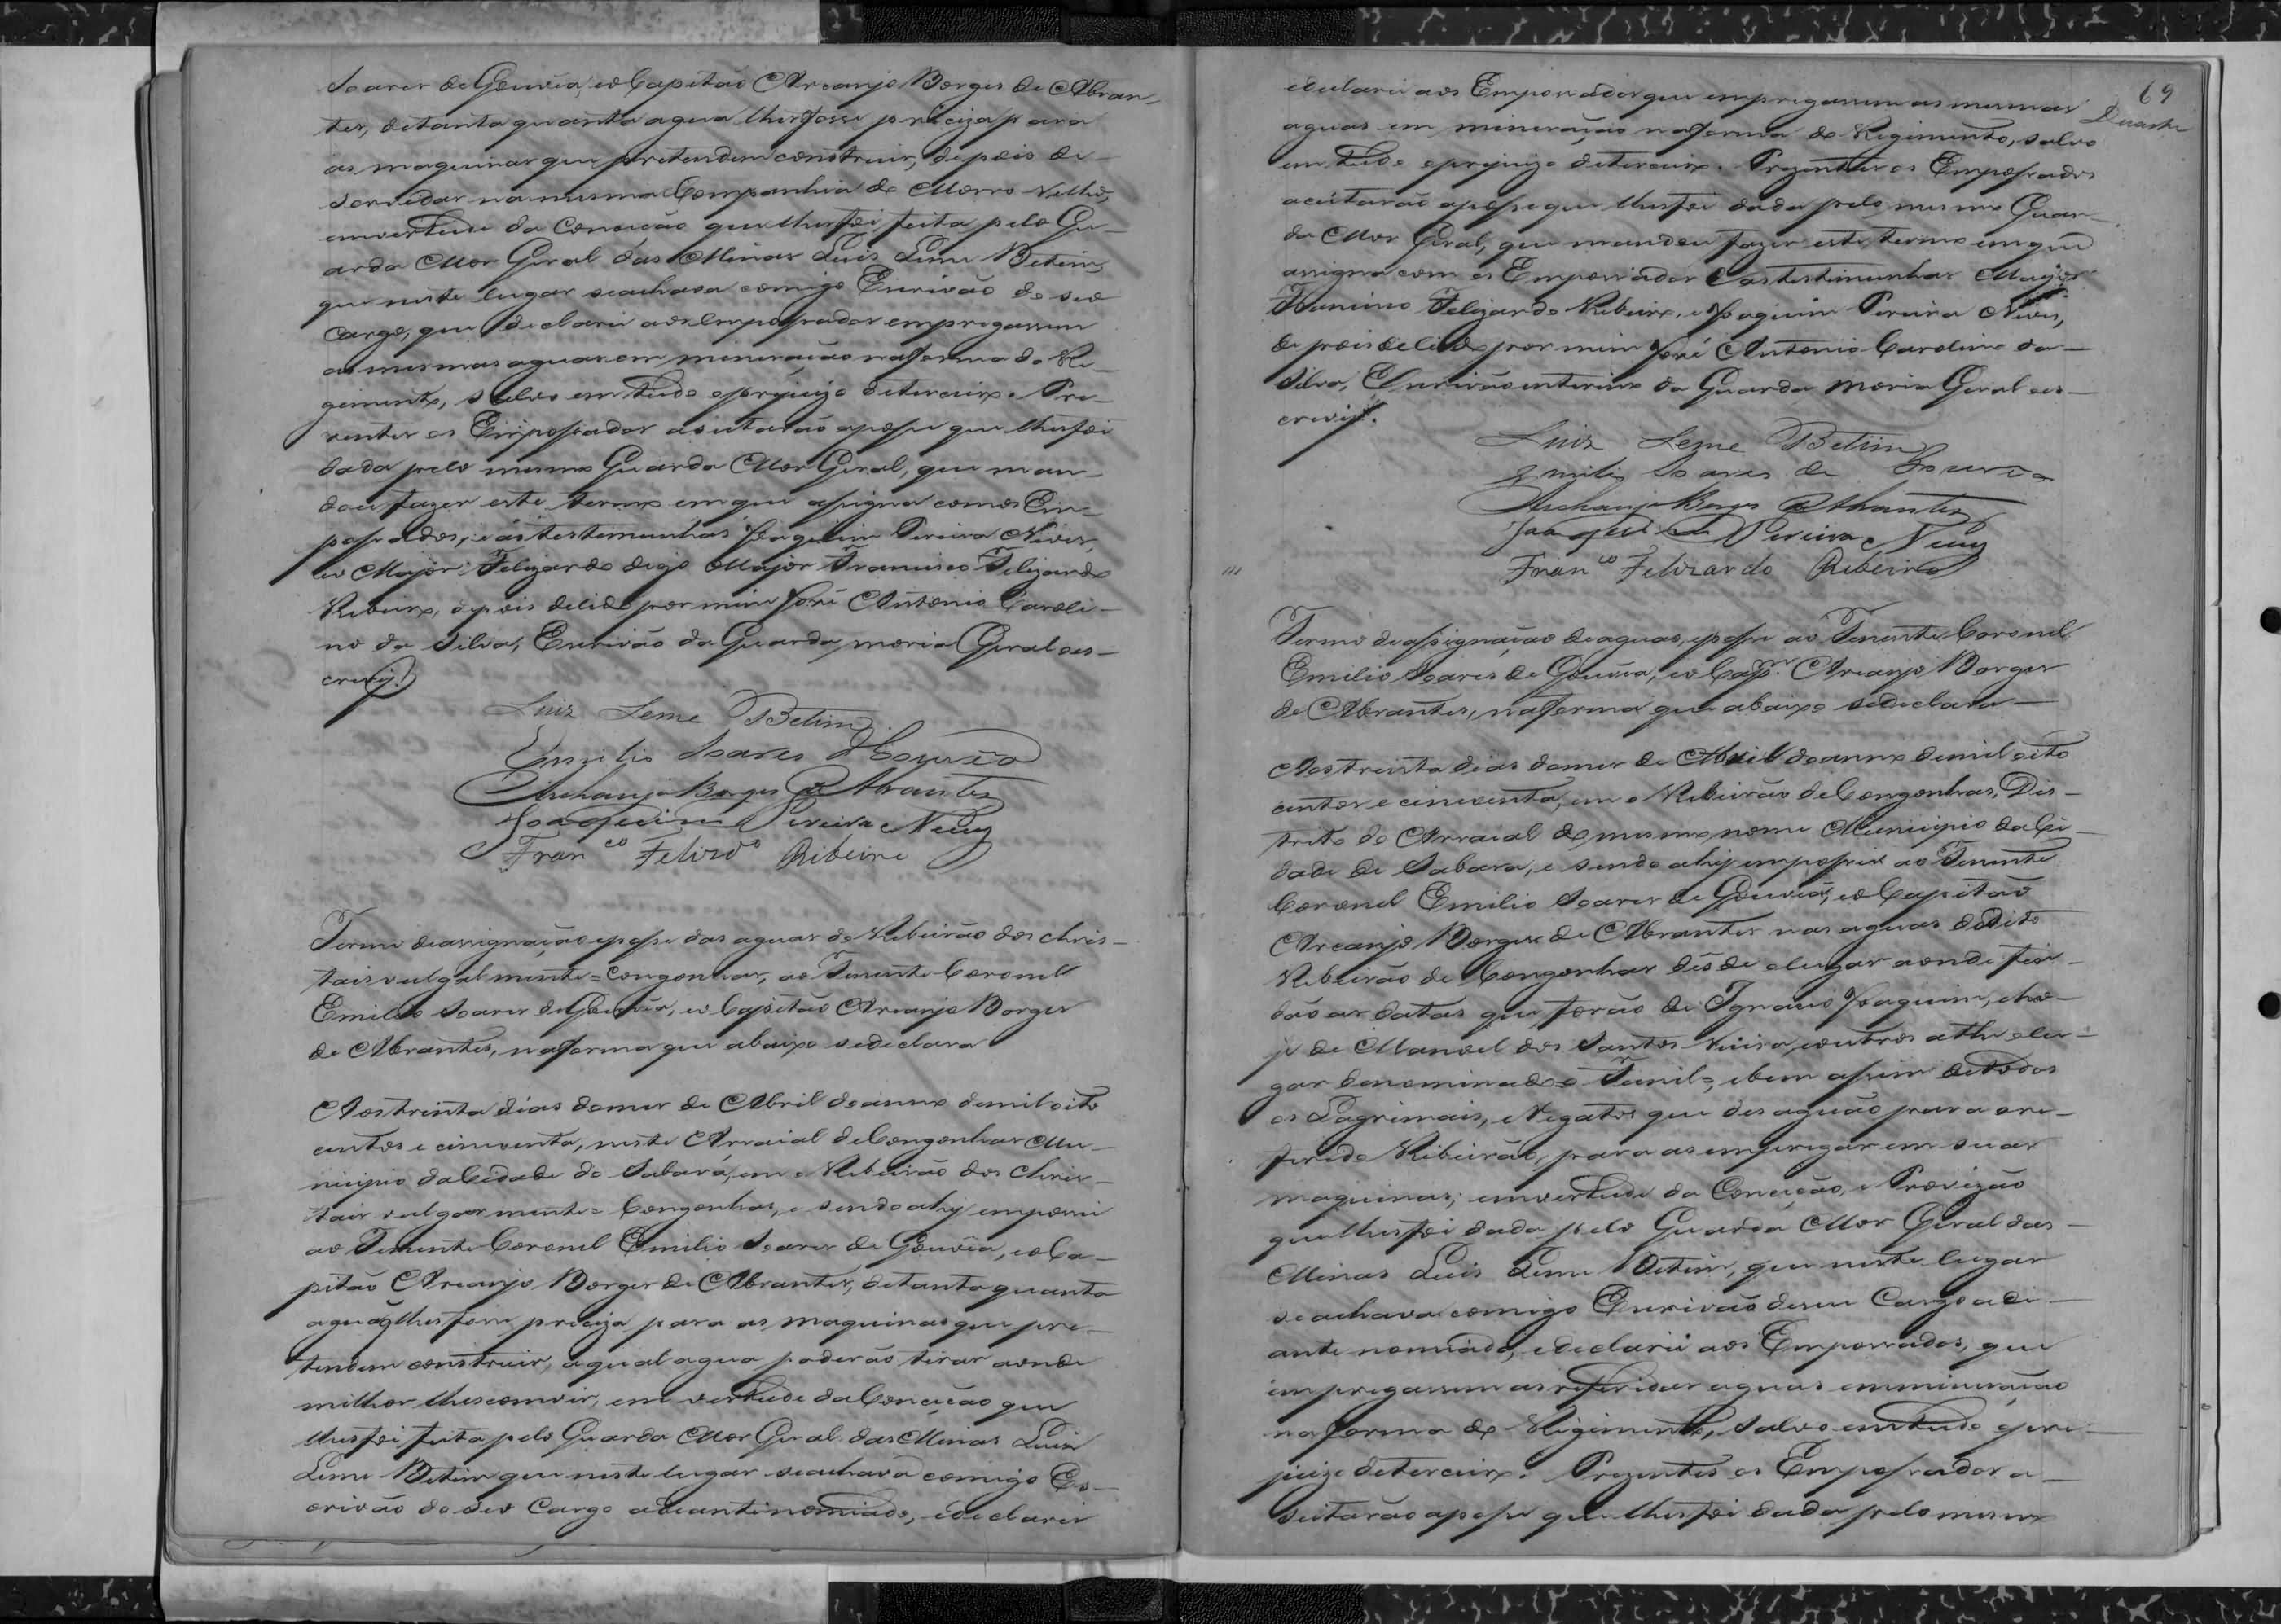 Soares de Gouvêa, eo Capitão Arcanjo Borges de Abran-
tes, detanta quanta agua lhesfosse preciza para
as maquinas que pretendem construir, depois de
servidas namesma Companhia do Morro Velho,
emvertude da Conceção que lhesfoi feita pelo Gu-
arda Mor Geral das Minas Luis Leme Betim,
que neste lugar seachava comigo Escrivão do seo
cargo, que declarei aos Empossados empregassem
as mesmas aguas em mineração naforma do Re-
gimento, salvo emtudo oprejuizo deterceiro. Pre-
zentes os Empossados aceitarão aposse que lhesfoi
dada pelo mesmo Guarda Mor Geral, que man-
dou fazer este termo emque assigna comos Em-
possados, e as testemunhas Joaquim Pereira Neves,
eo Major Felizardo digo Major Francisco Felizardo
Ribeiro, depois delido por mim José Antonio Caroli-
no da Silva, Escrivão da Guarda moria Geral oes-
crevÿ.
Luiz Leme Betim
Emilio Soares d Gouvêa
Archanjo Borges d Abrantes
Joaquim Pereira Neves
Franco Felizdo Ribeiro
Termo deassignação eposse das aguas do Ribeirão dos chris-
tais vulgalmente = Congonhas, ao Tenente Coronel
Emilio Soares de Gouvêa, eo Capitão Arcanjo Borges
de Abrantes, naforma que abaixo sedeclara
Aos trinta dias domes de Abril doanno demil oito
centos e cincoenta, neste Arraial de Congonhas Mu-
nicipio daCidade do Sabará, em o Ribeirão dos Chris-
tais vulgarmente = Congonhas, e sendo ahÿ empossei
ao Tenente Coronel Emilio Soares de Gouvêa, eo Ca-
pitão Arcanjo Borges de Abrantes, detanta quanta
agua lhesfosse preciza para as maquinas que pre-
tendem construir, aqual agua poderão tirar aonde
milhor lhesconvier, em vertude da Conceção que
lhesfoi feita pelo Guarda Mor Geral das Minas Luis
Leme Betim que neste lugar seachava comigo Es-
crivão do seo Cargo adeante nomiado, edeclarei
69
Duarte
edeclarei aos Empossados que empregassem as mesmas
aguas em mineração naforma do Regimento, salvo
emtudo oprejuizo deterceiro. Prezentes os Empossados
aceitarão aposse que lhesfoi dada pelo mesmo Guar-
da Mor Geral, que mandou fazer este termo emque
assigna com os Empossados e as testemunhas Major
Francisco Felizardo Ribeiro, e Joaquim Pereira Neves,
depois delido por mim José Antonio Carolino da
Silva, Escrivão interino da Guarda moria Geral oes-
crevÿ.
Luiz Leme Betim
Emilio Soares de Gouvea
Archanjo Borges d Abrantes
Joaquim Pereira Neves
Franco Felizardo Ribeiro
Termo deassignação deaguas, eposse ao Tenente Coronel
Emilio Soares de Gouvêa, eo Capm. Arcanjo Borges
de Abrantes, naforma que abaixo sedeclara
Aos trinta dias domes de Abril doanno demil oito
centos e cincoenta, em o Ribeirão de Congonhas, Dis-
trito do Arraial do mesmo nome Municipio daCi-
dade de Sabara, e sendo ahÿ empossei ao Tenente
Coronel Emilio Soares de Gouvêa, eo Capitão
Arcanjo Borges de Abrantes nas aguas dodito
Ribeirão de Congonhas désde olugar aonde fin-
dão as datas que forão de Ignacio Joaquim, eho-
je de Manoel dos Santos Vieira, eoutros athe olu-
gar denominado = Funil =, ebem assim detodos
os Lagrimais, eRegatos que desaguão para ore-
ferido Ribeirão, para as empregar em suas
maquinas; emvertude da Conceção, e Provizão
que lhesfoi dada pelo Guarda Mor Geral das
Minas Luis Leme Betim, que neste lugar
se achava comigo Escrivão deseu Cargo adi-
ante nomiado, edeclarei aos Empossados, que
empregassem as referidas aguas emmineração
naforma do Regimento, salvo emtudo opre-
juizo deterceiro. Prezentes os Empossados a-
seitarão aposse que lhesfoi dada pelo mesmo